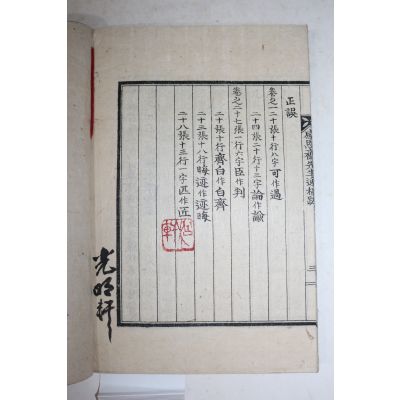 正誤
卷之一二十張十行八字可作過
二十四張二十行十三字論作諭
卷之二十七張一行六字臣作判
二十張十行齊白作白齊
二十三張十八行晦迹作迹晦
二十八張十三行一字匹作匠
光明軒